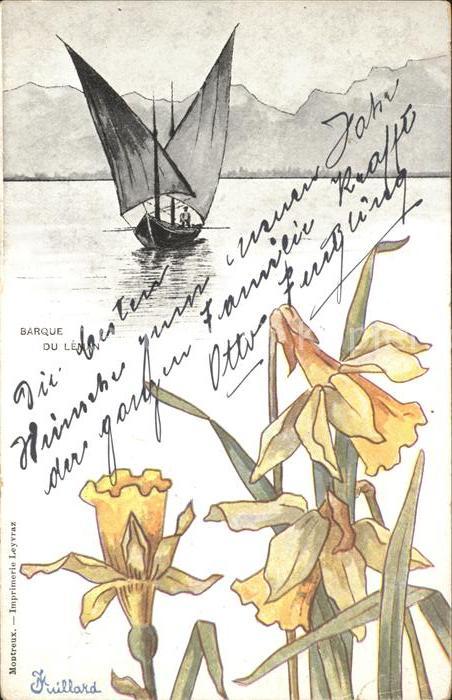 BARQUE
DU LÉMAN
Die besten
Wünsche zum neuen Jahr
der ganzen Familie Krafft
Otto
Montreux. — Imprimerie Leyvraz
Vuillard